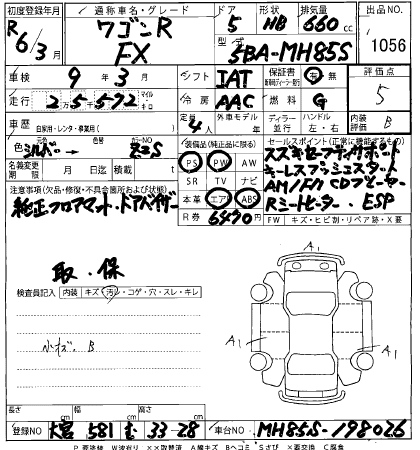 初度登録年月 通称車名・グレード ドア 形状 排気量 出品NO.
R6/3月 ワゴンR FX 5 HB 660cc 1056
型式 5BA-MH85S
車検 9年3月 シフト IAT 保証書 有・無 評価点 5
走行 25千572 マイル キロ 冷房 AAC 燃料 G
車歴 自家用・レンタ・事業用( ) 定員 4人 ディーラー 並行 ハンドル 左・右 内装 B
色 シルバー カラーNO Z2S 装備品(純正品に限る) セールスポイント(正常に機能するもの)
名義変更期限 月 日 積載 t PS PW AW
SR TV ナビ
本革 エア ABS
R券 6470円
スズキセーフティサポート
キーレスプッシュスタート
AM/FM CDプレーヤー
Rシートヒーター、ESP
注意事項(欠品・修復・不具合箇所および状態)
純正フロアマット・ドアバイザー
FW キズ・ヒビ割・リペア跡・X要
取・保
検査員記入 内装 キズ・汚レ・コゲ・穴・スレ・キレ
小キズ B
A1
A1
A1
長さ cm 幅 cm 高さ cm
登録NO 大宮 581 む 33-28 車台NO MH85S-198026
P要塗装 W波有り XX取替済 A線キズ Bヘコミ Sさび X要交換 C腐食